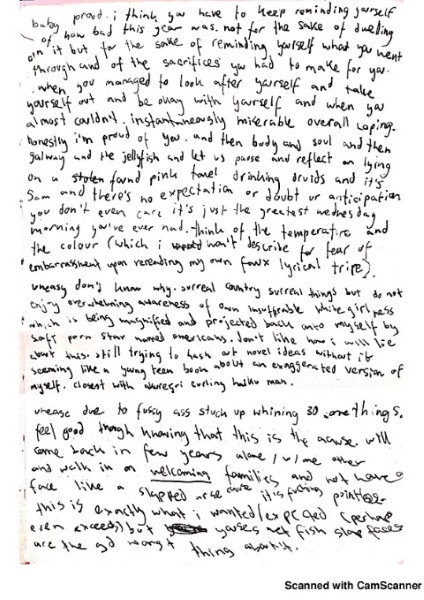 baby proud. i think you have to keep reminding yourself
of how bad this year was. not for the sake of dwelling
on it but for the sake of reminding yourself what you went
through and of the sacrifices you had to make for you.
when you managed to look after yourself and take
yourself out and be okay with yourself and when you
almost couldnt. instantaneously miserable overall coping.
honestly i'm proud of you. and then body and soul and then
galway and the jellyfish and let us pause and reflect on lying
on a stolen found pink towel drinking druids and it's
5am and there's no expectation or doubt or anticipation
you don't even care it's just the greatest wednesday
morning you've ever had. think of the temperature and
the colour (which i won't describe for fear of
embarrassment upon rereading my own faux lyrical tripe).
uneasy don't know why. surreal country surreal things but do not
enjoy overwhelming awareness of own insufferable white girl ness
which is being magnified and projected back onto myself by
soft porn star named americans. don't like how i will lie
about this. still trying to hash out novel ideas without it
seeming like a young teen book about an exaggerated version of
myself. closest with curling haiku man.
unease due to fussy ass stuck up whining 30 somethings.
feel good though knowing that this is the cause. will
come back in few years alone / w / me other
and walk in on welcoming families and not have a
face like a slapped arse cure it is fucking pointless.
this is exactly what i wanted/expected (perhaps
even exceeds) but yer fish slap faces
are the thing about it.
Scanned with CamScanner